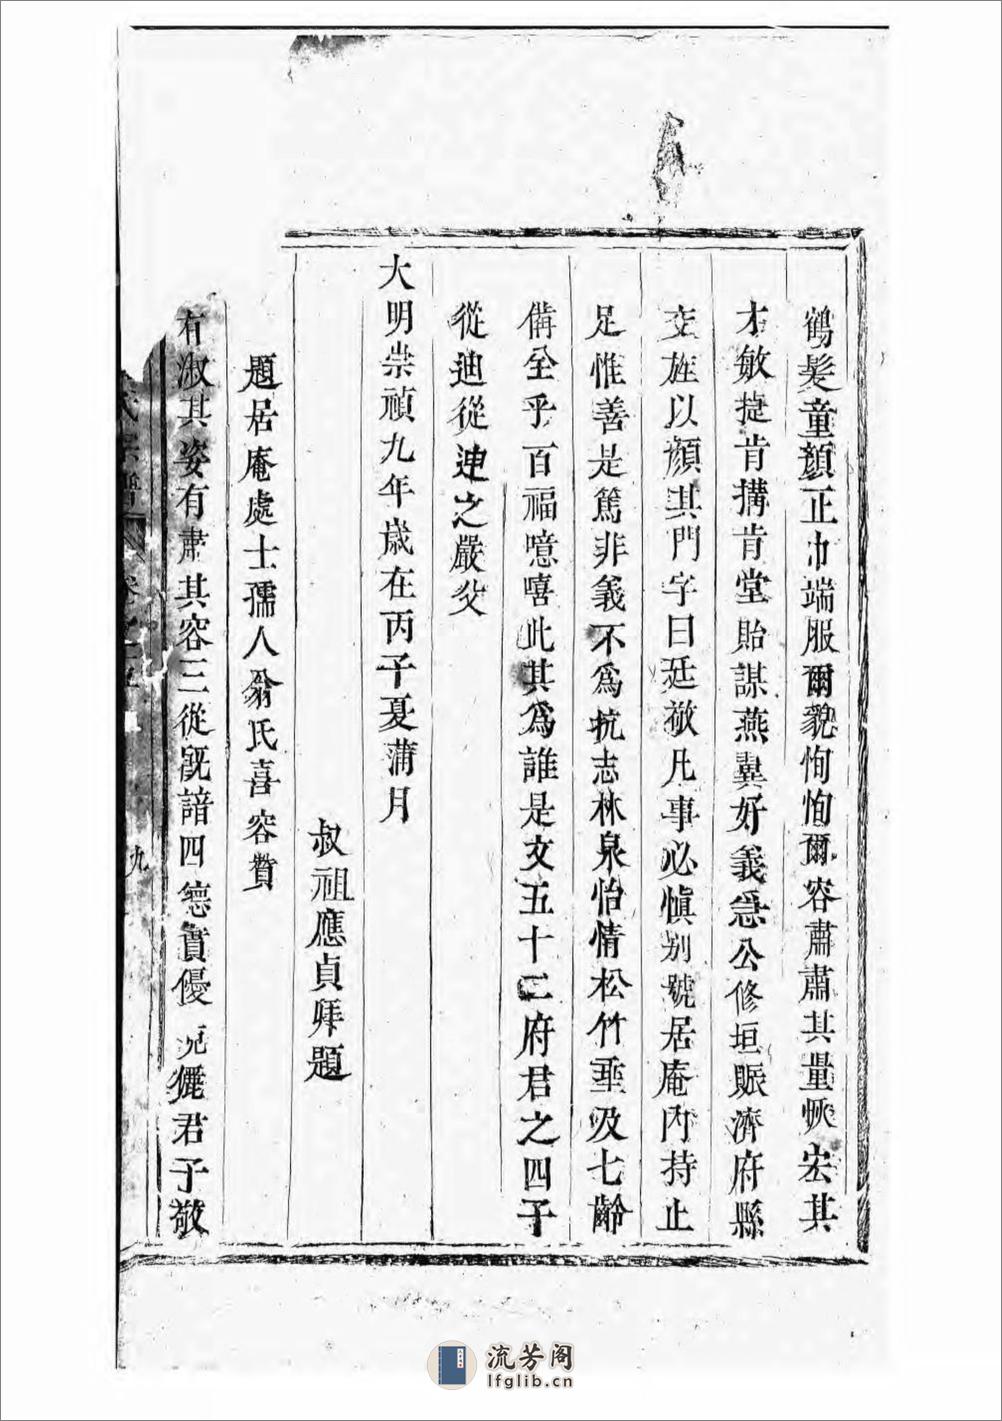 鶴髮童顏正巾端服爾貌恂恂爾容肅肅其量恢宏其
才敏捷肯搆肯堂貽謀燕翼好義急公修垣賑濟府縣
交旌以顏其門字曰廷敬凡事必慎別號居庵內持止
足惟善是篤非義不爲抗志林泉怡情松竹垂及七齡
備全乎百福噫嘻此其爲誰是文五十二府君之四子
從迪從連之嚴父
大明崇禎九年歲在丙子夏蒲月
叔祖應貞拜題
題居庵處士孺人翁氏喜容贊
有淑其姿有肅其容三從旣諳四德實優克儷君子敬
氏宗譜 卷 九
流芳阁
lfglib.cn